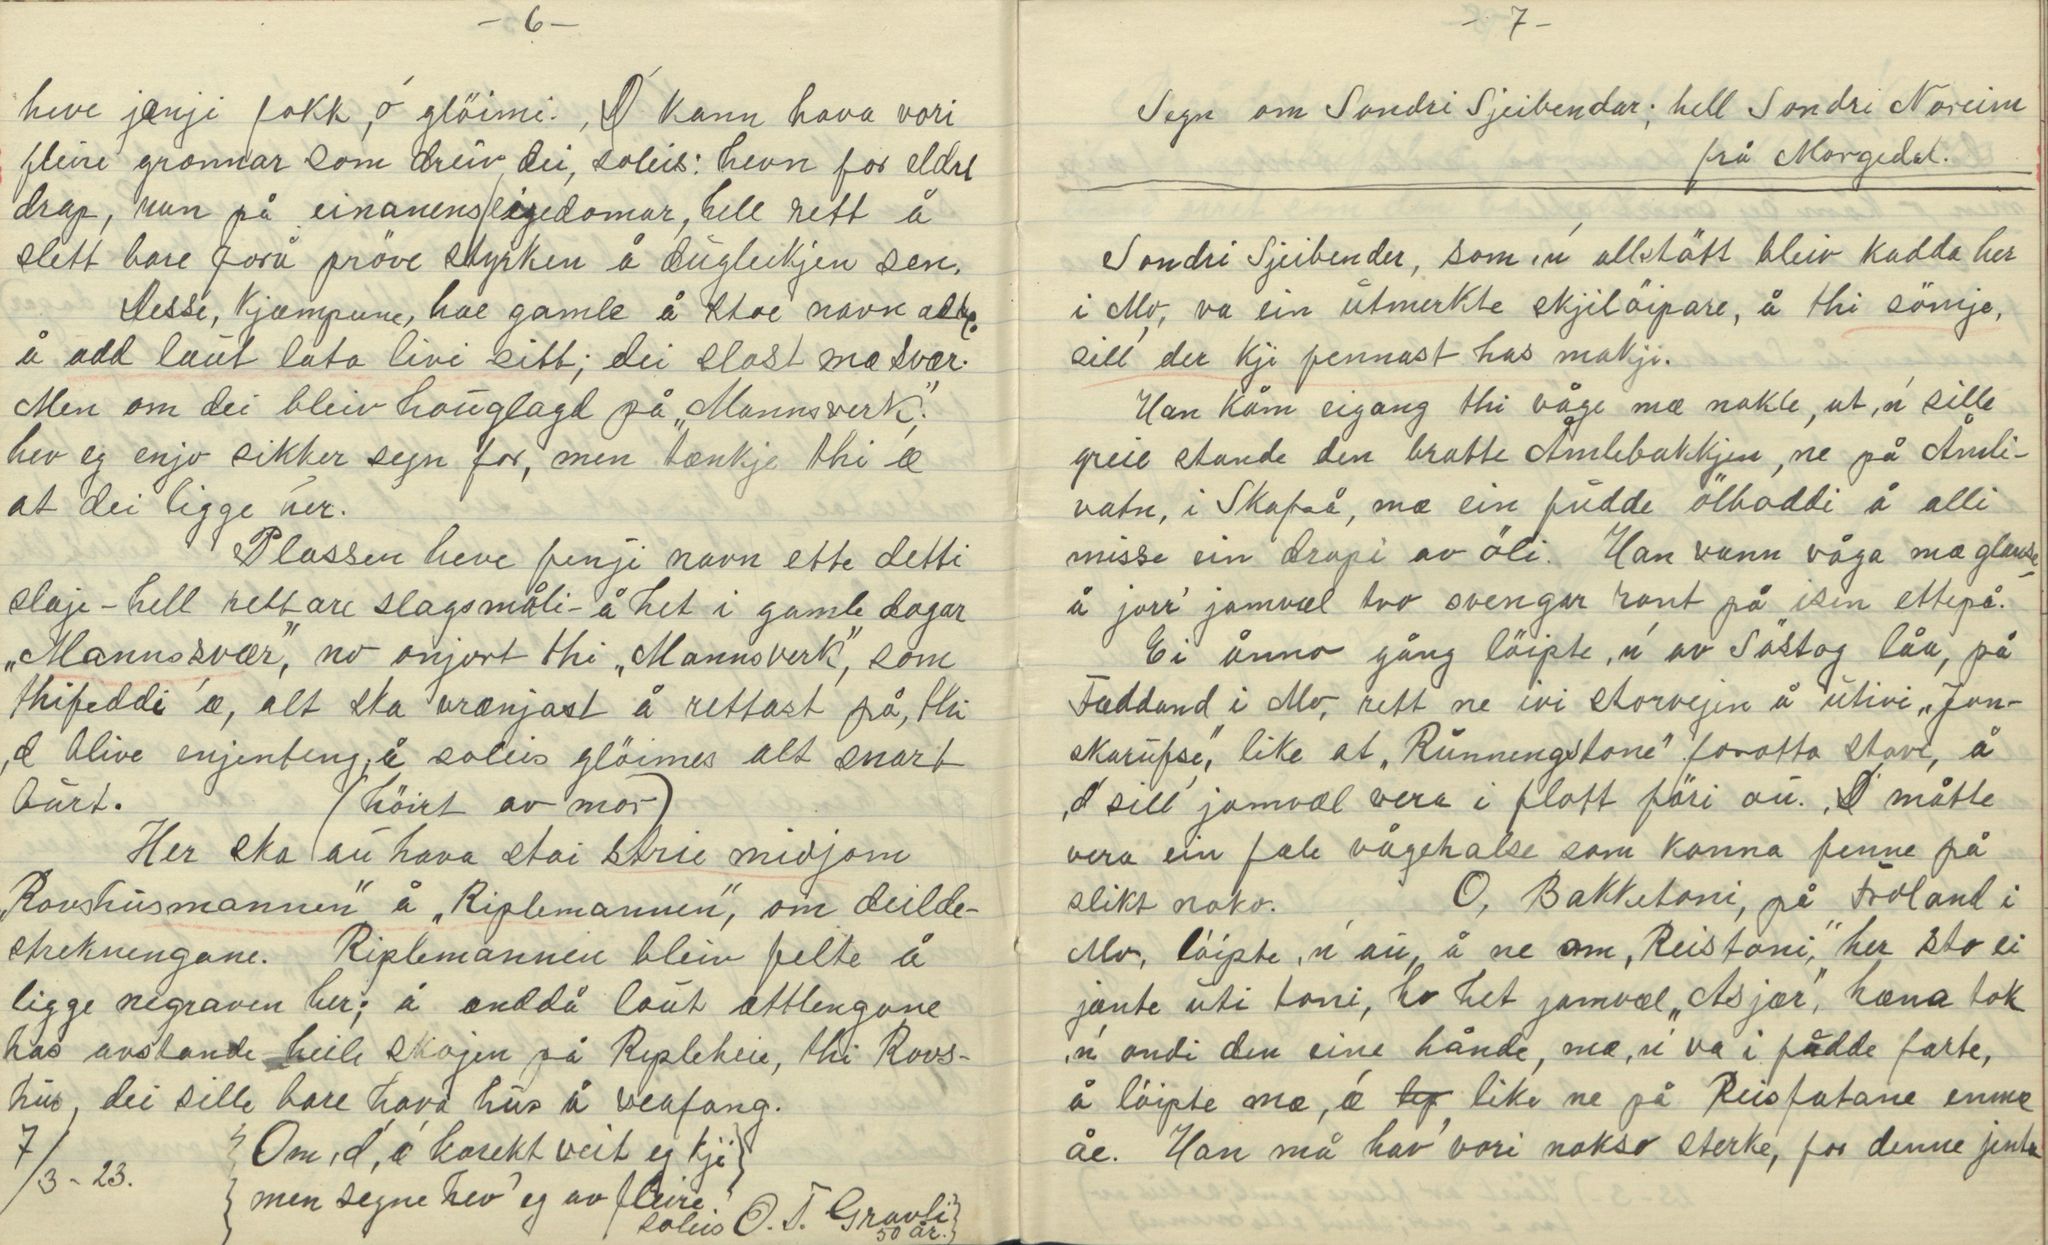 - 6 -
heve jænji fokk, ó glöimi. ,D' kann hava vori
fleire gronnar som dreiv dei, soleis: hevn for eldre
drap, ran på einanens eigedomar, hell rett å
slett bare forå pröve styrken å dugleikjen sen.
Desse, kjæmpune, hae gamle å stoe navn adde
å add laut lata livi sitt; dei slost mæ svær.
Men om dei bleiv hauglagd på „Mannsverk",
hev eg enjo sikker segn for, men tænkje thi æ
at dei ligge her.
Plassen heve fenji navn ette detti
slaje - hell rettare slagsmåli - å het i gamle dagar
„Mannssvær", no onjort thi „Mannsverk", som
thifeddi æ, alt ska vrænjast å rettast på, thi
,d blive enjenteng, å soleis glöimes alt snart
burt. (höirt av mor)
Her ska au hava stai strie midjom
„Rovshusmannen" å „Riplemannen", om deilde-
streknengane. Riplemannen bleiv felte å
ligge negraven her; å ænddå laut ættlengane
has avstande heile skojen på Ripleheie, thi Rovs-
hus, dei sille bare hava hus å veafang.
7/3 - 23. {Om ,d', æ korekt veit eg kji}
{men segne hev' eg av fleire
soleis O. T. Gravli
50 år.}
- 7 -
Segn om Sondri Sjeibendar; hell Sondri Noreim
frå Morgedal.
Sondri Sjeibender, som ,n' allstött bleiv kadda her
i Mo, va ein utmerkte skjilöipare, å thi sömje,
sill' der kji fennast has makji.
Han kåm eigang thi våge mæ nokle, at ,n' sille
greie stande den bratte Åmlebakkjen, ne på Åmli-
vatn, i Skafså, mæ ein fudde ölboddi å alli
misse ein drapi av öli. Han vann våga mæ glanse
å jorr' jamvæl tvo svengar ront på isen ettepå.
Ei ånno gång löipte ,n' av Söstog låu, på
Fæddand i Mo, rett ne ivi storvejen å utivi „Jon-
skarufse", like at „Rúnnengstone" foratta stove, å
,d' sill' jamvæl vera i flatt föri au. ,D' måtte
vera ein fale vågehalse som konna fenne på
slikt noko. O, Bakketoni, på Froland i
Mo, löipte ,n' au, å ne om „Reistoni", her sto ei
jænte uti toni, ho het jamvæl „Asjær", hæna tok
,n' ondi den eine hånde, mæ ,n' va i fudde farte,
å löipte mæ, æ like ne på Reisfatane enmæ
åe. Han må hav' vori nokso sterke, for denne jenta